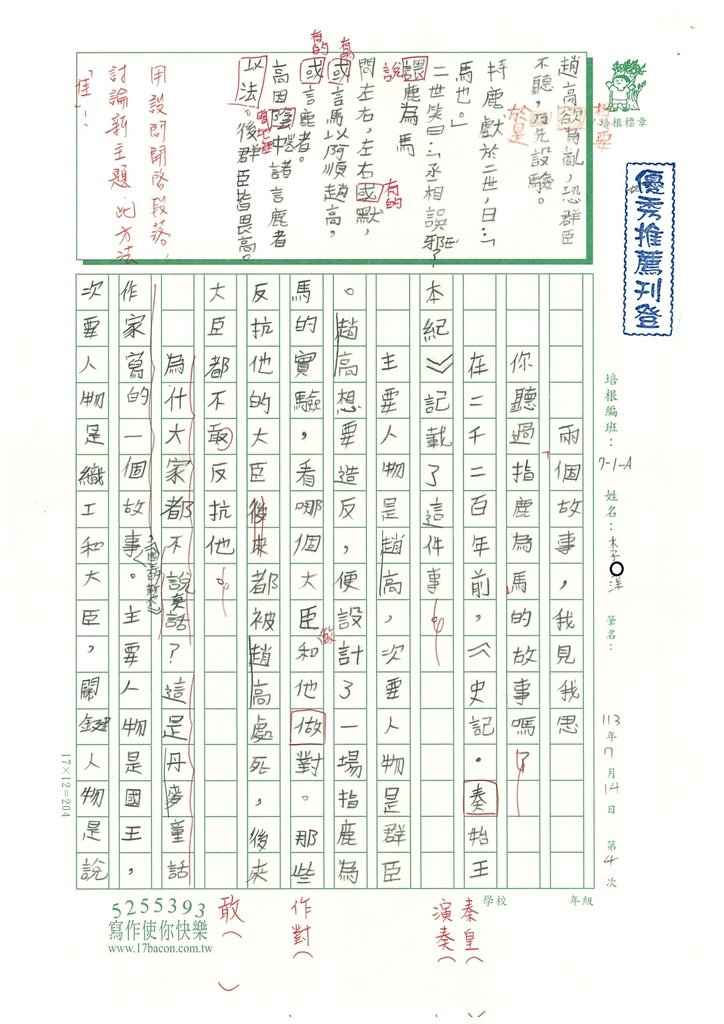 培根標章
趙高欲為亂，恐群臣
不聽，乃先設驗。
於是
想要
持鹿獻於二世，曰：「
馬也。」
二世笑曰：「丞相誤邪？
謂鹿為馬
說
問左右，左右或默，
有的
或言馬以阿順趙高，
有的
或言鹿者。
有的
高因陰中諸言鹿者
暗地裡
以法。後群臣皆畏高。
用設問開啓段落，
討論新主題，此方法
佳！
優秀推薦刊登
培根編班：7-1-A 姓名：李○洋 筆名： 113年7月14日 第4次
兩個故事，我見我思
你聽過「指鹿為馬」的故事嗎？
在二千二百年前，《史記．奏始王
本紀》記載了這件事。
主要人物是趙高，次要人物是群臣
。趙高想要造反，便設計了一場指鹿為
馬的實驗，看哪個大臣敢和他做對。那些
反抗他的大臣後來都被趙高處死，後來
大臣都不敢反抗他。
為什大家都不說真話？這是丹麥童話
作家寫的一個故事，《國王的新衣》。主要人物是國王，
次要人物是織工和大臣，關鍵人物是說
17×12=204
學校 年級
秦皇（
演奏（
作對（
敢（ ）
5255393
寫作使你快樂
www.17bacon.com.tw